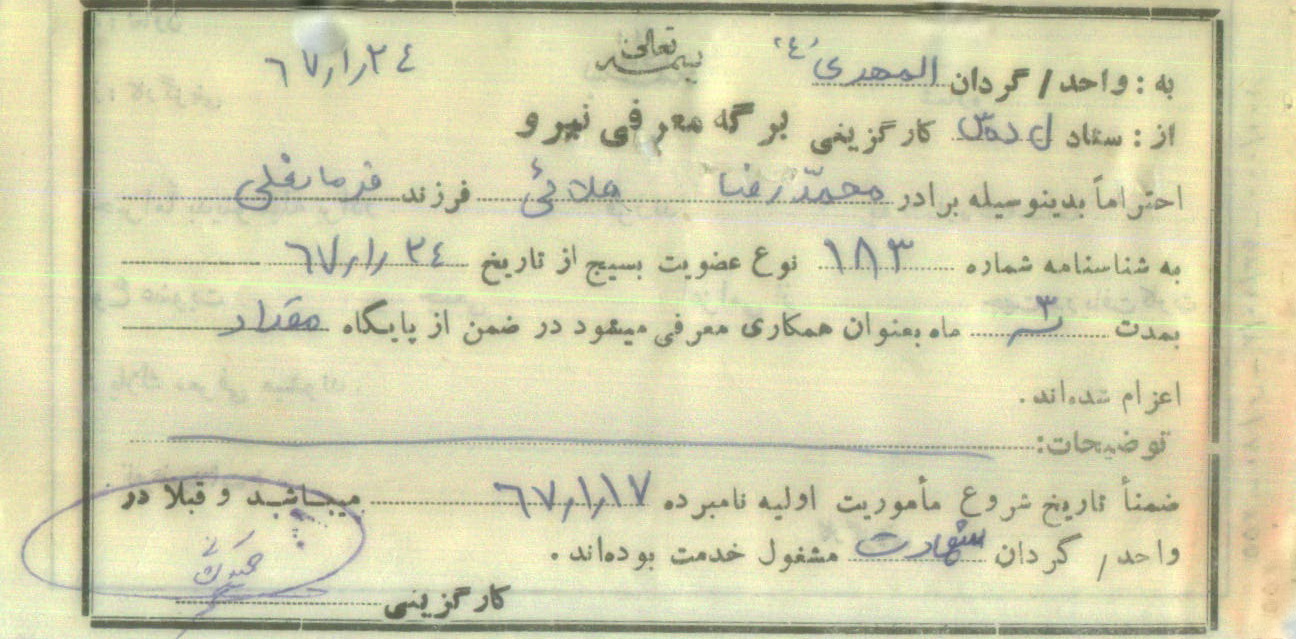 بسمه تعالی
به : واحد / گردان المهدی "٤" ٦٧/١/٢٤
از : ستاد ل ده کارگزینی برگه معرفی نیرو
احتراماً بدینوسیله برادر محمدرضا هلائی فرزند فرمانعلی
به شناسنامه شماره ١٨٣ نوع عضویت بسیج از تاریخ ٦٧/١/٢٤
بمدت ٣ ماه بعنوان همکاری معرفی میشود در ضمن از پایگاه مقداد
اعزام شده‌اند .
توضیحات:
ضمناً تاریخ شروع مأموریت اولیه نامبرده ٦٧/١/١٧ میباشد و قبلا در
واحد / گردان شهادت مشغول خدمت بوده‌اند .
کارگزینی